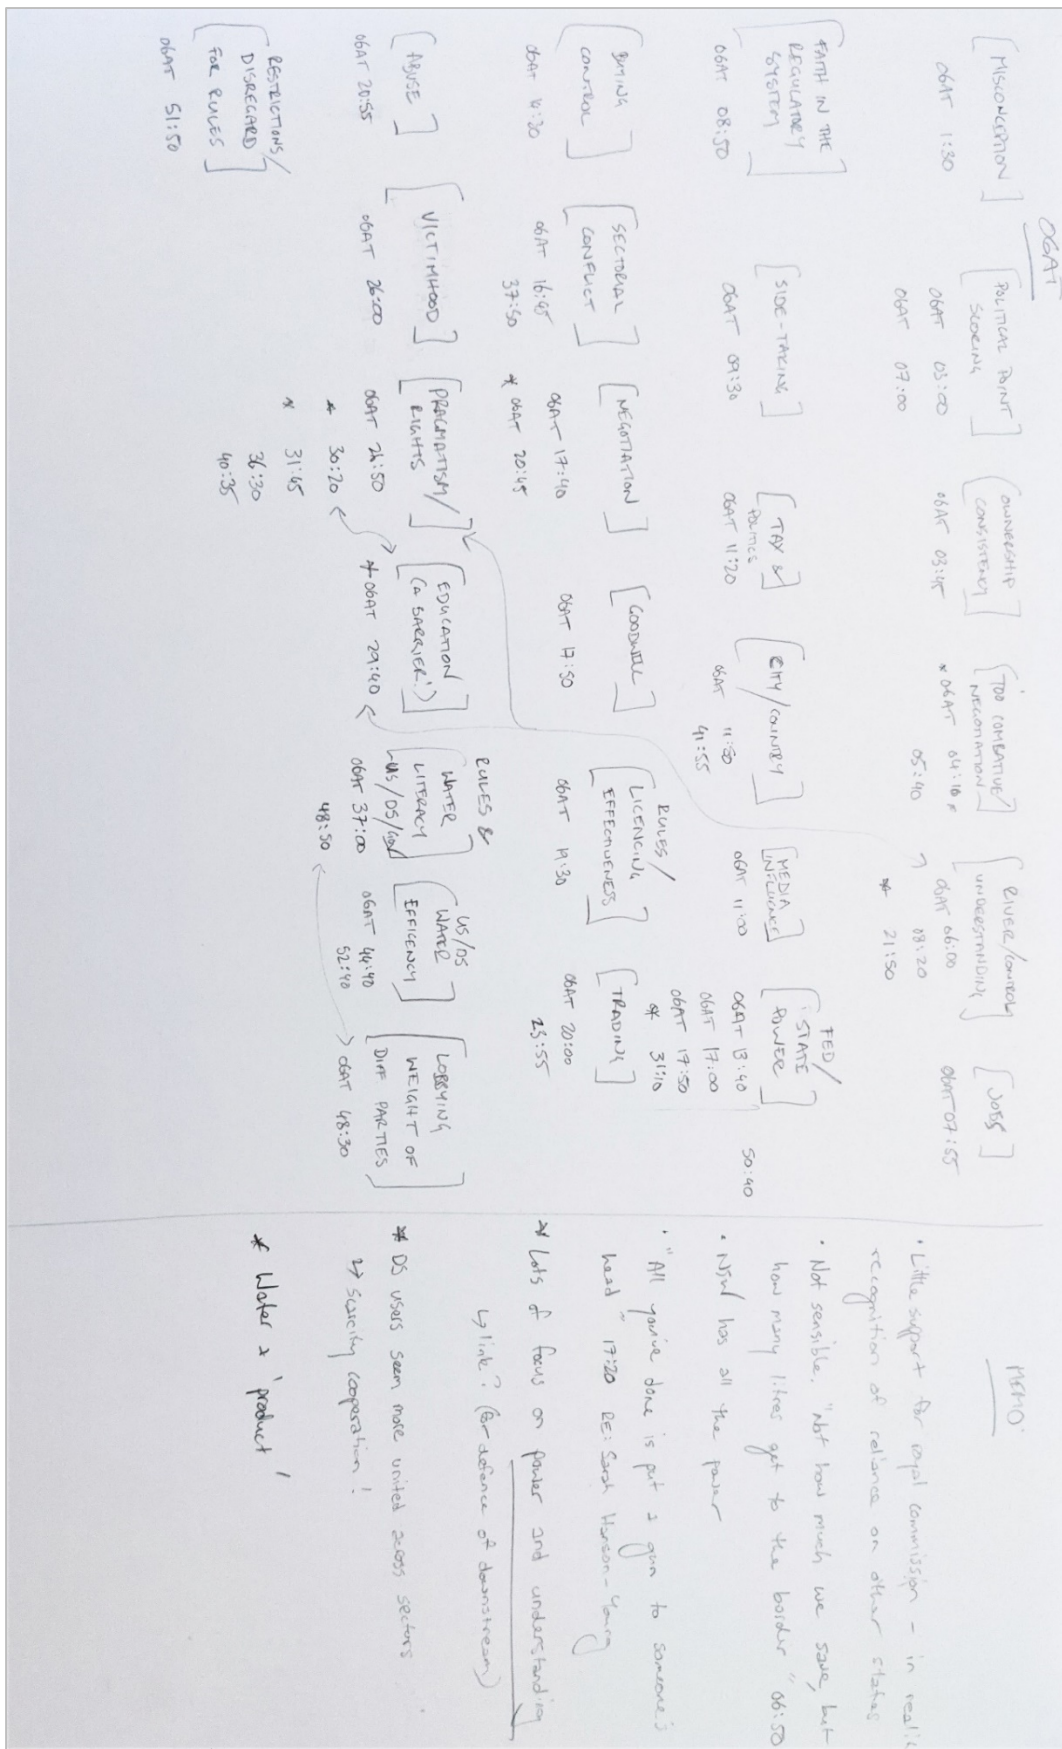 06AT
[MISCONCEPTION]
06AT 1:30
[POLITICAL POINT
SCORING]
06AT 03:00
06AT 07:00
[OWNERSHIP
CONSISTENCY]
06AT 03:45
[TOO COMBATIVE/
NEGOTIATION]
* 06AT 04:10 *
05:40
[RIVER/CONTROL
UNDERSTANDING]
06AT 06:00
08:20
* 21:50
[JOBS]
06AT 07:55
[FAITH IN THE
REGULATORY
SYSTEM]
06AT 08:50
[SIDE-TAKING]
06AT 09:30
[TAX &
POLITICS
06AT 11:20
[CITY/COUNTRY]
06AT 11:50
41:55
[MEDIA
INFLUENCE]
06AT 11:00
FED/
[STATE
POWER]
06AT 13:40
06AT 17:00
06AT 17:50
* 31:10
50:40
[BUYING
CONTROL]
06AT 14:30
[SECTORIAL
CONFLICT]
06AT 16:45
37:50
[NEGOTIATION]
06AT 17:40
* 06AT 20:45
[GOODWILL]
06AT 17:50
RULES/
[LICENCING
EFFECTIVENESS]
06AT 19:30
[TRADING]
06AT 20:00
23:55
[ABUSE]
06AT 20:55
[VICTIMHOOD]
06AT 26:00
[PRAGMATISM/
RIGHTS]
06AT 24:50
* 30:20
* 31:45
36:30
40:35
[EDUCATION
(a BARRIER!)]
* 06AT 29:40
RULES &
[WATER
LITERACY]
US/DS/
06AT 37:00
48:50
US/DS
[WATER
EFFICENCY]
06AT 44:40
52:40
[LOBBYING
WEIGHT OF
DIFF PARTIES]
06AT 48:30
RESTRICTIONS/
[DISREGARD
FOR RULES]
06AT 51:50
MEMO
• Little support for royal commission - in
recognition of reliance on other states
• Not sensible. "Not how much we save, but
how many litres get to the border" 06:50
• NSW has all the power
• "All you've done is put a gun to someone's
head" 17:20 RE: Sarah Hanson-Young
* Lots of focus on power and understanding
↳ link? (for defence of downstream)
* DS users seem more united across sectors
↳ scarcity cooperation!
* Water a 'product'